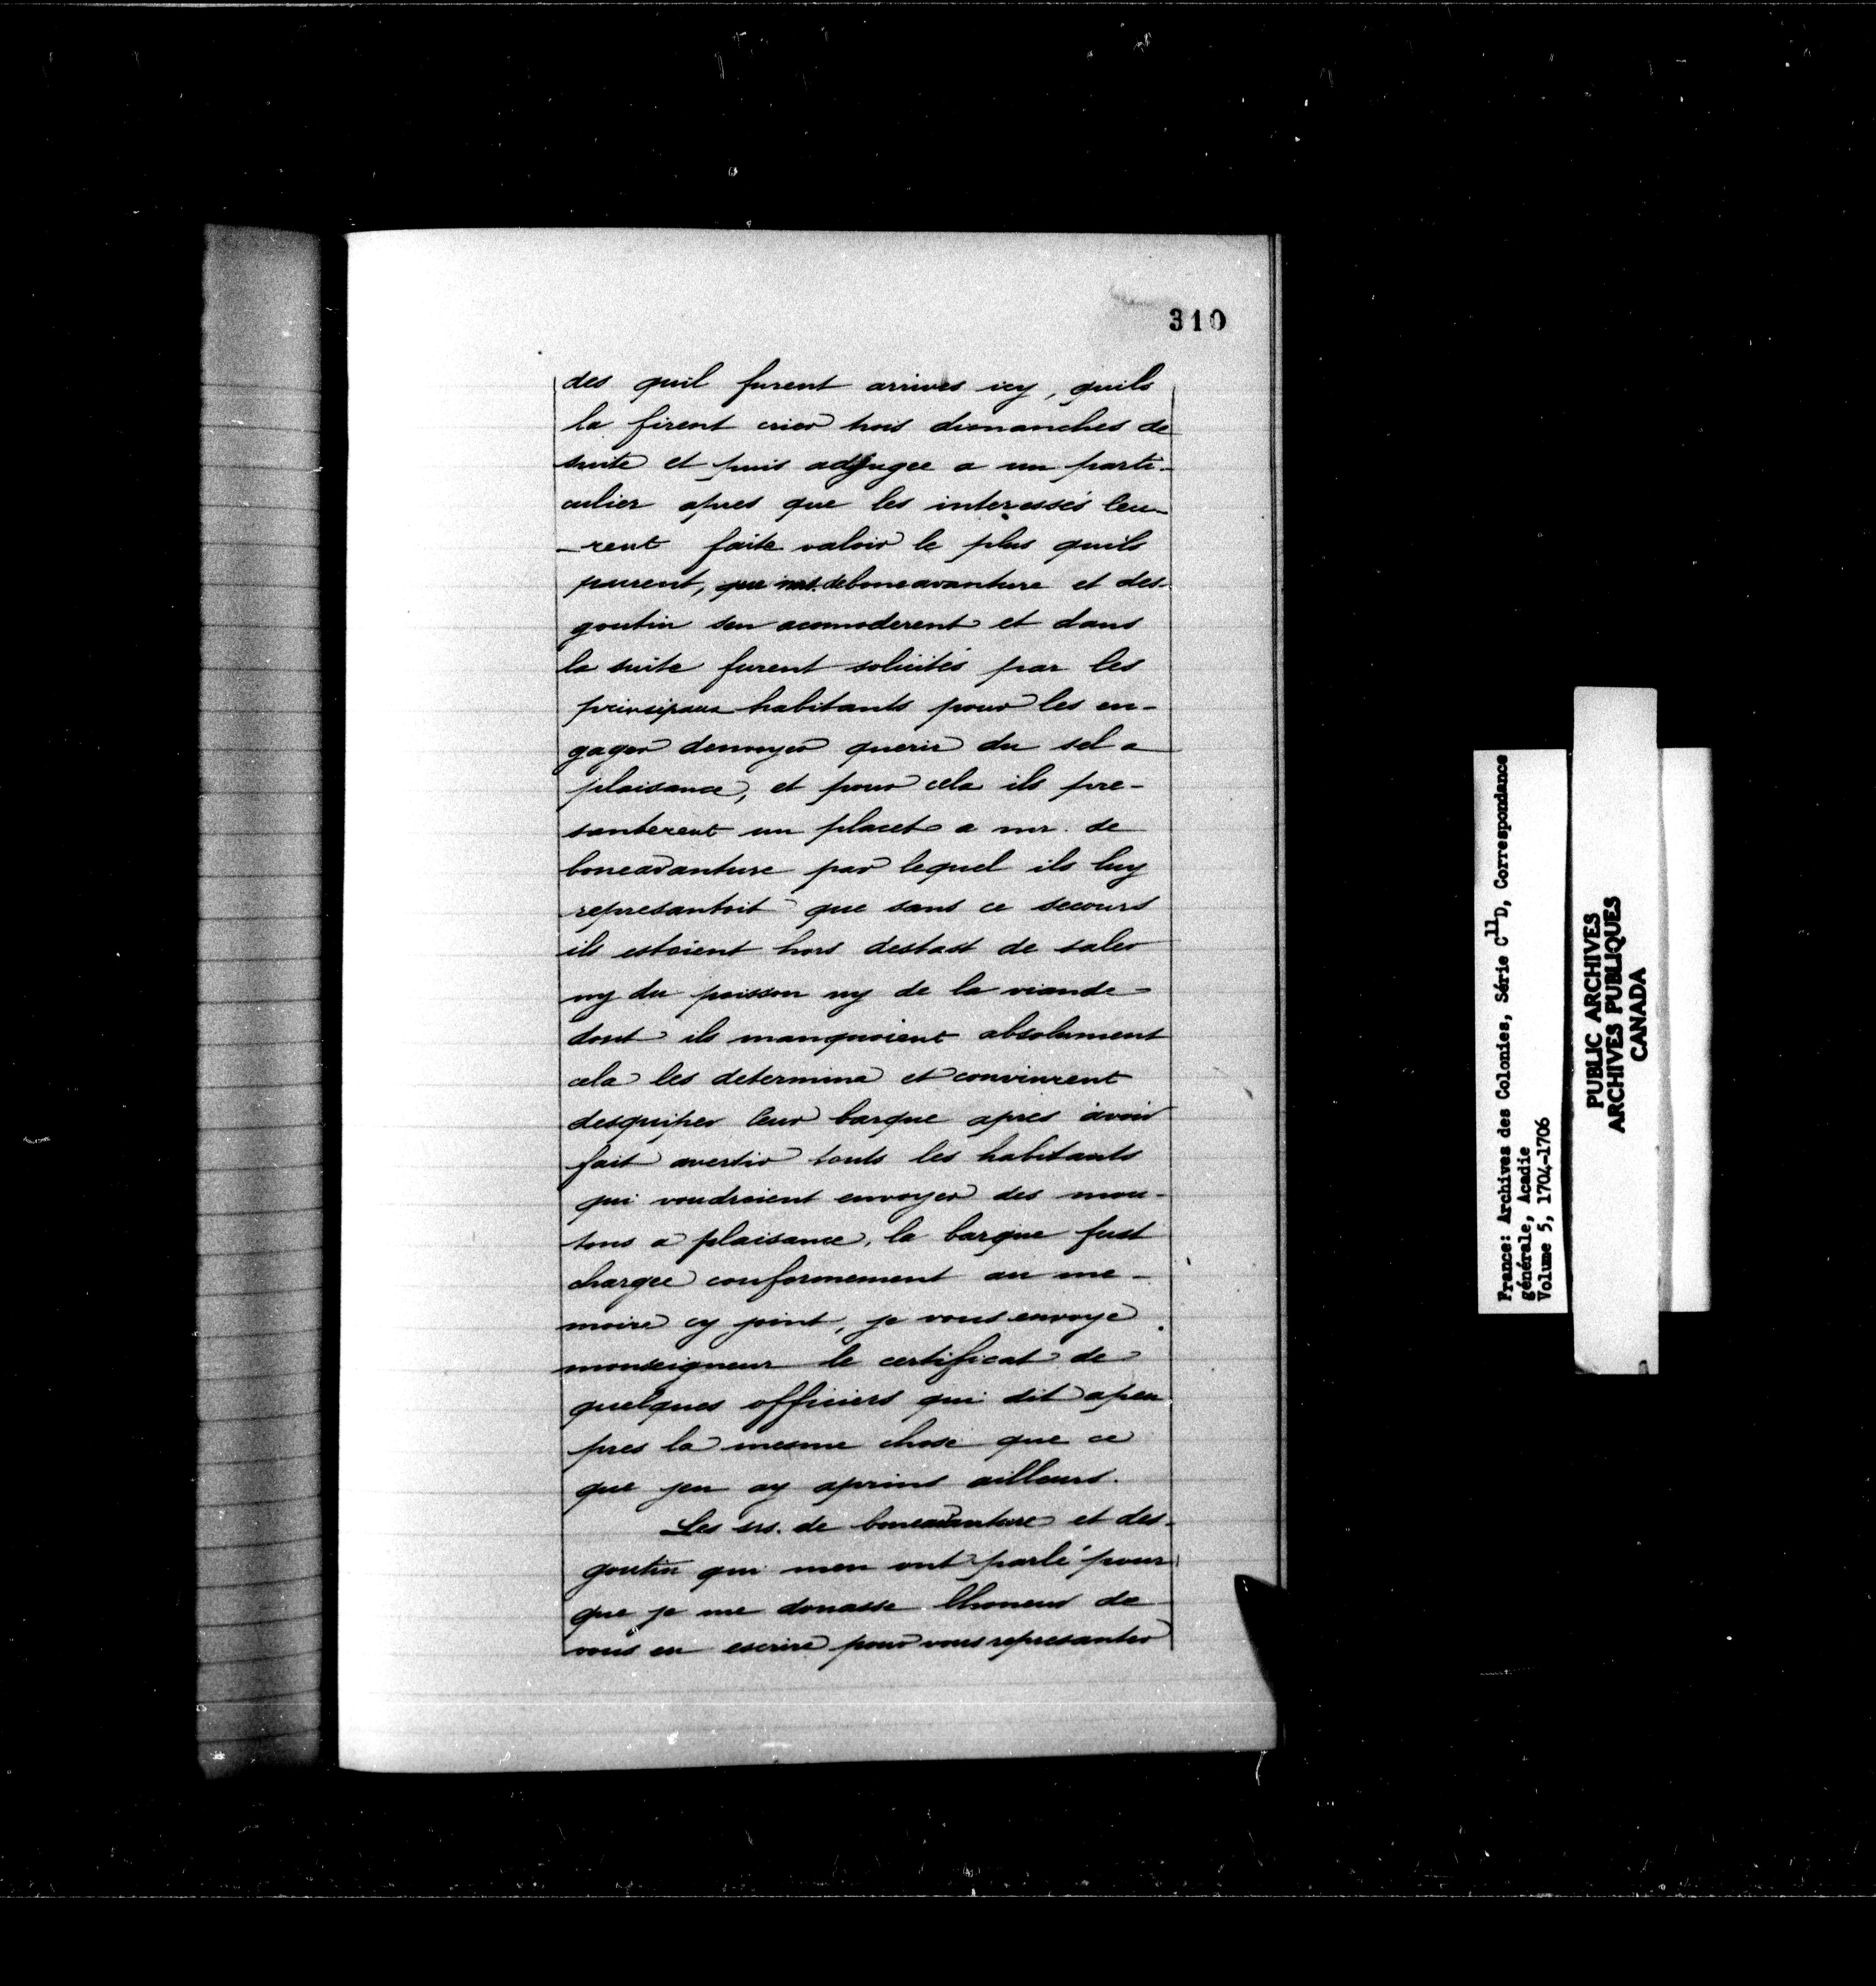 310
des quil furent arrives icy, quils
la firent crier trois dimanches de
suite et puis adjugee a un parti-
culier apres que les interessés leu-
-rent faite valoir le plus quils
purent, que mrs. deboneavanture et des-
goutin sen acomoderent et dans
la suite furent solicités par les
principaux habitants pour les en-
gager denvoyer querir du sel a
plaisance, et pour cela ils pre-
santerent un placet a mr. de
boneavanture par lequel ils luy
represantoit que sans ce secours
ils estoient hors destast de saler
ny du poisson ny de la viande
dont ils manquoient absolument
cela les determina et convinrent
desquiper leur barque apres avoir
fait avertir touts les habitants
qui voudroient envoyer des mou-
tons a plaisance, la barque fust
chargee conformement au me-
moire cy joint, je vous envoye
monseigneur le certificat de
quelques officiers qui dit apeu
pres la mesme chose que ce
que jen ay aprins ailleurs.
Les srs. de boneavanture et des-
goutin qui men ont parlé pour
que je me donasse lhoneur de
vous en escrire pour vous represanter
France: Archives des Colonies, Série C11D, Correspondance
générale, Acadie
Volume 5, 1704-1706
PUBLIC ARCHIVES
ARCHIVES PUBLIQUES
CANADA